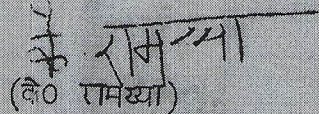 के. रामय्या
(के० रामय्या)